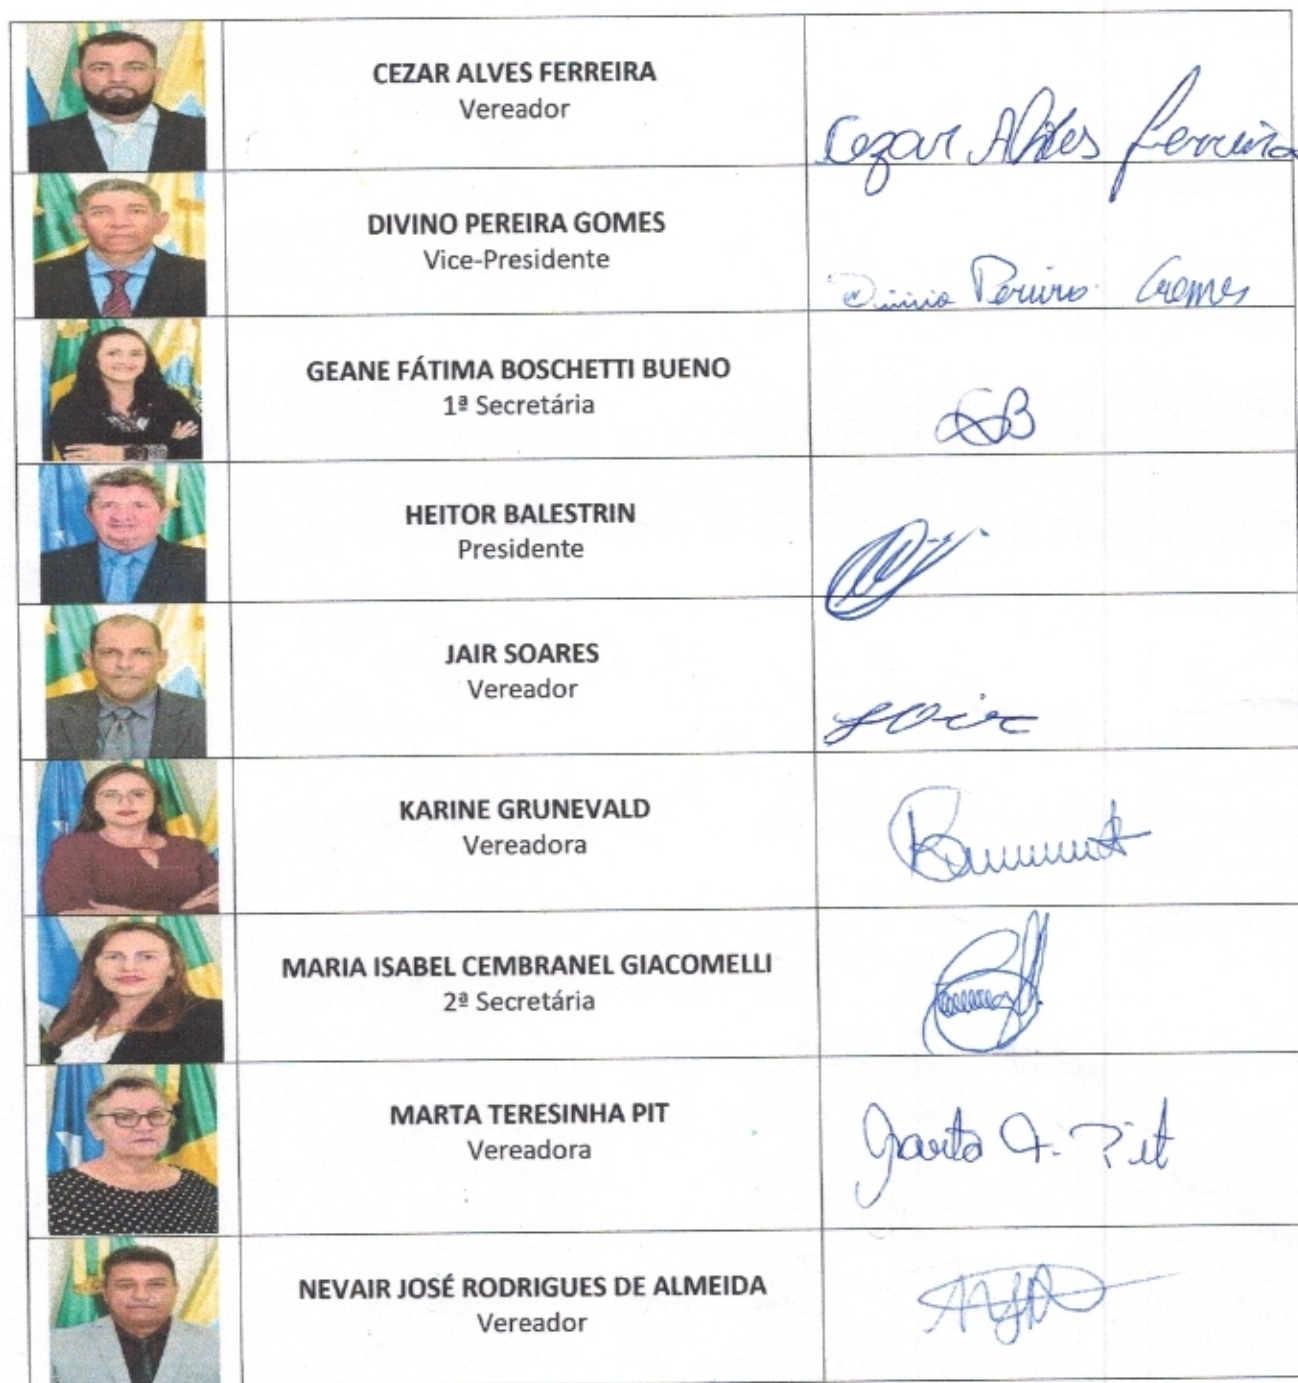 CEZAR ALVES FERREIRA
Vereador
Cezar Alves Ferreira
DIVINO PEREIRA GOMES
Vice-Presidente
Pereira Gomes
GEANE FÁTIMA BOSCHETTI BUENO
1ª Secretária
GB
HEITOR BALESTRIN
Presidente
JAIR SOARES
Vereador
Jair
KARINE GRUNEVALD
Vereadora
MARIA ISABEL CEMBRANEL GIACOMELLI
2ª Secretária
MARTA TERESINHA PIT
Vereadora
Marta T. Pit
NEVAIR JOSÉ RODRIGUES DE ALMEIDA
Vereador